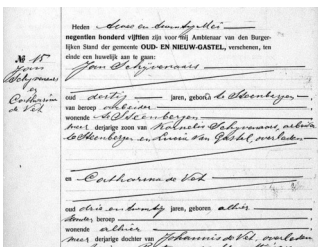 Heden zes en twintig Mei
negentien honderd vijftien zijn voor mij Ambtenaar van den Burger-
lijken Stand der gemeente OUD- EN NIEUW-GASTEL, verschenen, ten
einde een huwelijk aan te gaan:
№ 15
Jan
Schijvenaars
en
Catharina
de Vet
Jan Schijvenaars
oud dertig jaren, geboren te Steenbergen
van beroep arbeider
wonende te Steenbergen
meerderjarige zoon van Kornelis Schijvenaars, arbeider
te Steenbergen en van Gastel, overleden
en Catharina de Vet
oud drie en twintig jaren, geboren alhier
zonder beroep
wonende alhier
meerderjarige dochter van Johannis de Vet, overleden